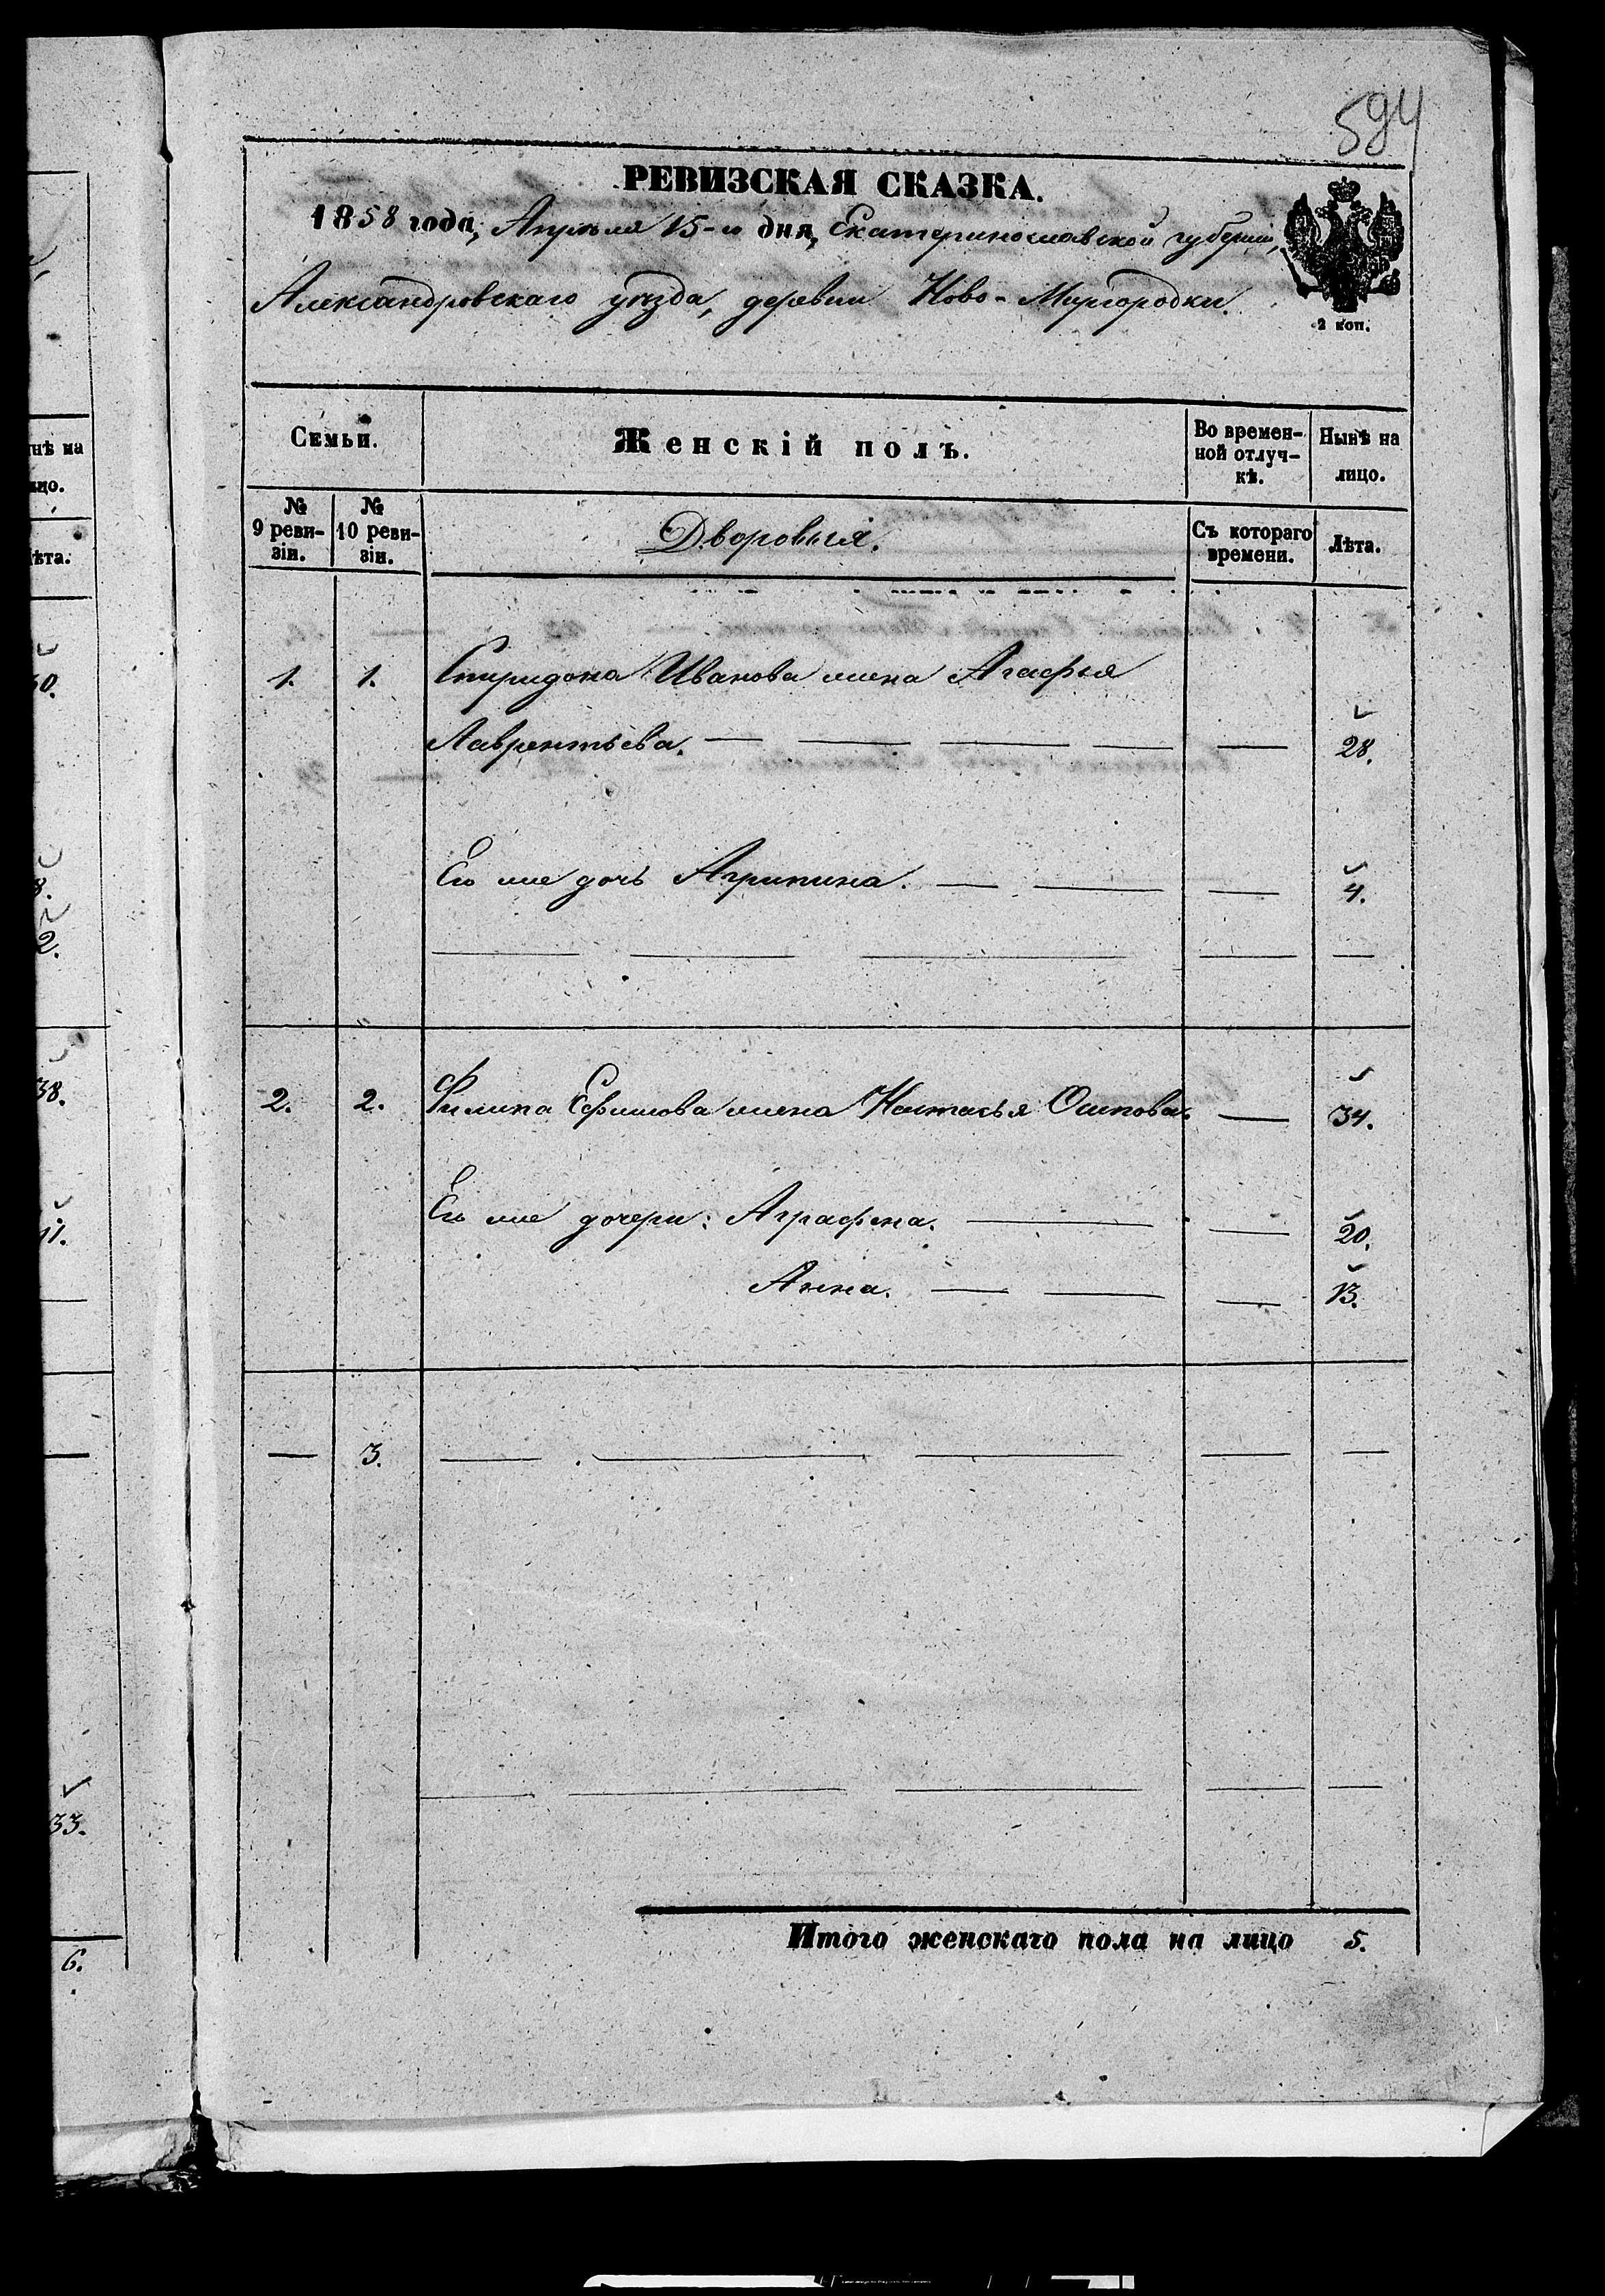 594
РЕВИЗСКАЯ СКАЗКА.
1858 года, Апрѣля 15-го дня, Екатеринославской губерніи,
Александровскаго уѣзда, деревни Ново-Миргородки.
2 коп.
Семьи. Женскій полъ. Во времен-ной отлуч-кѣ. Нынѣ на лицо.
№ 9 реви-зіи. № 10 реви-зіи. Дворовыя. Съ котораго времени. Лѣта.
1. 1. Спиридона Иванова жена Агафья
Лаврентьева. — — — — — 28.
Его же дочь Агрипина. — — — 4.
2. 2. Филипа Ефимова жена Настасья Осипова. — 34.
Его же дочери: Аграфена. — — 20.
Анна. — — — 13.
— 3. — — — — —
Итого женскаго пола на лицо 5.
нѣ на
ицо.
ѣта.
38.
11.
33.
6.